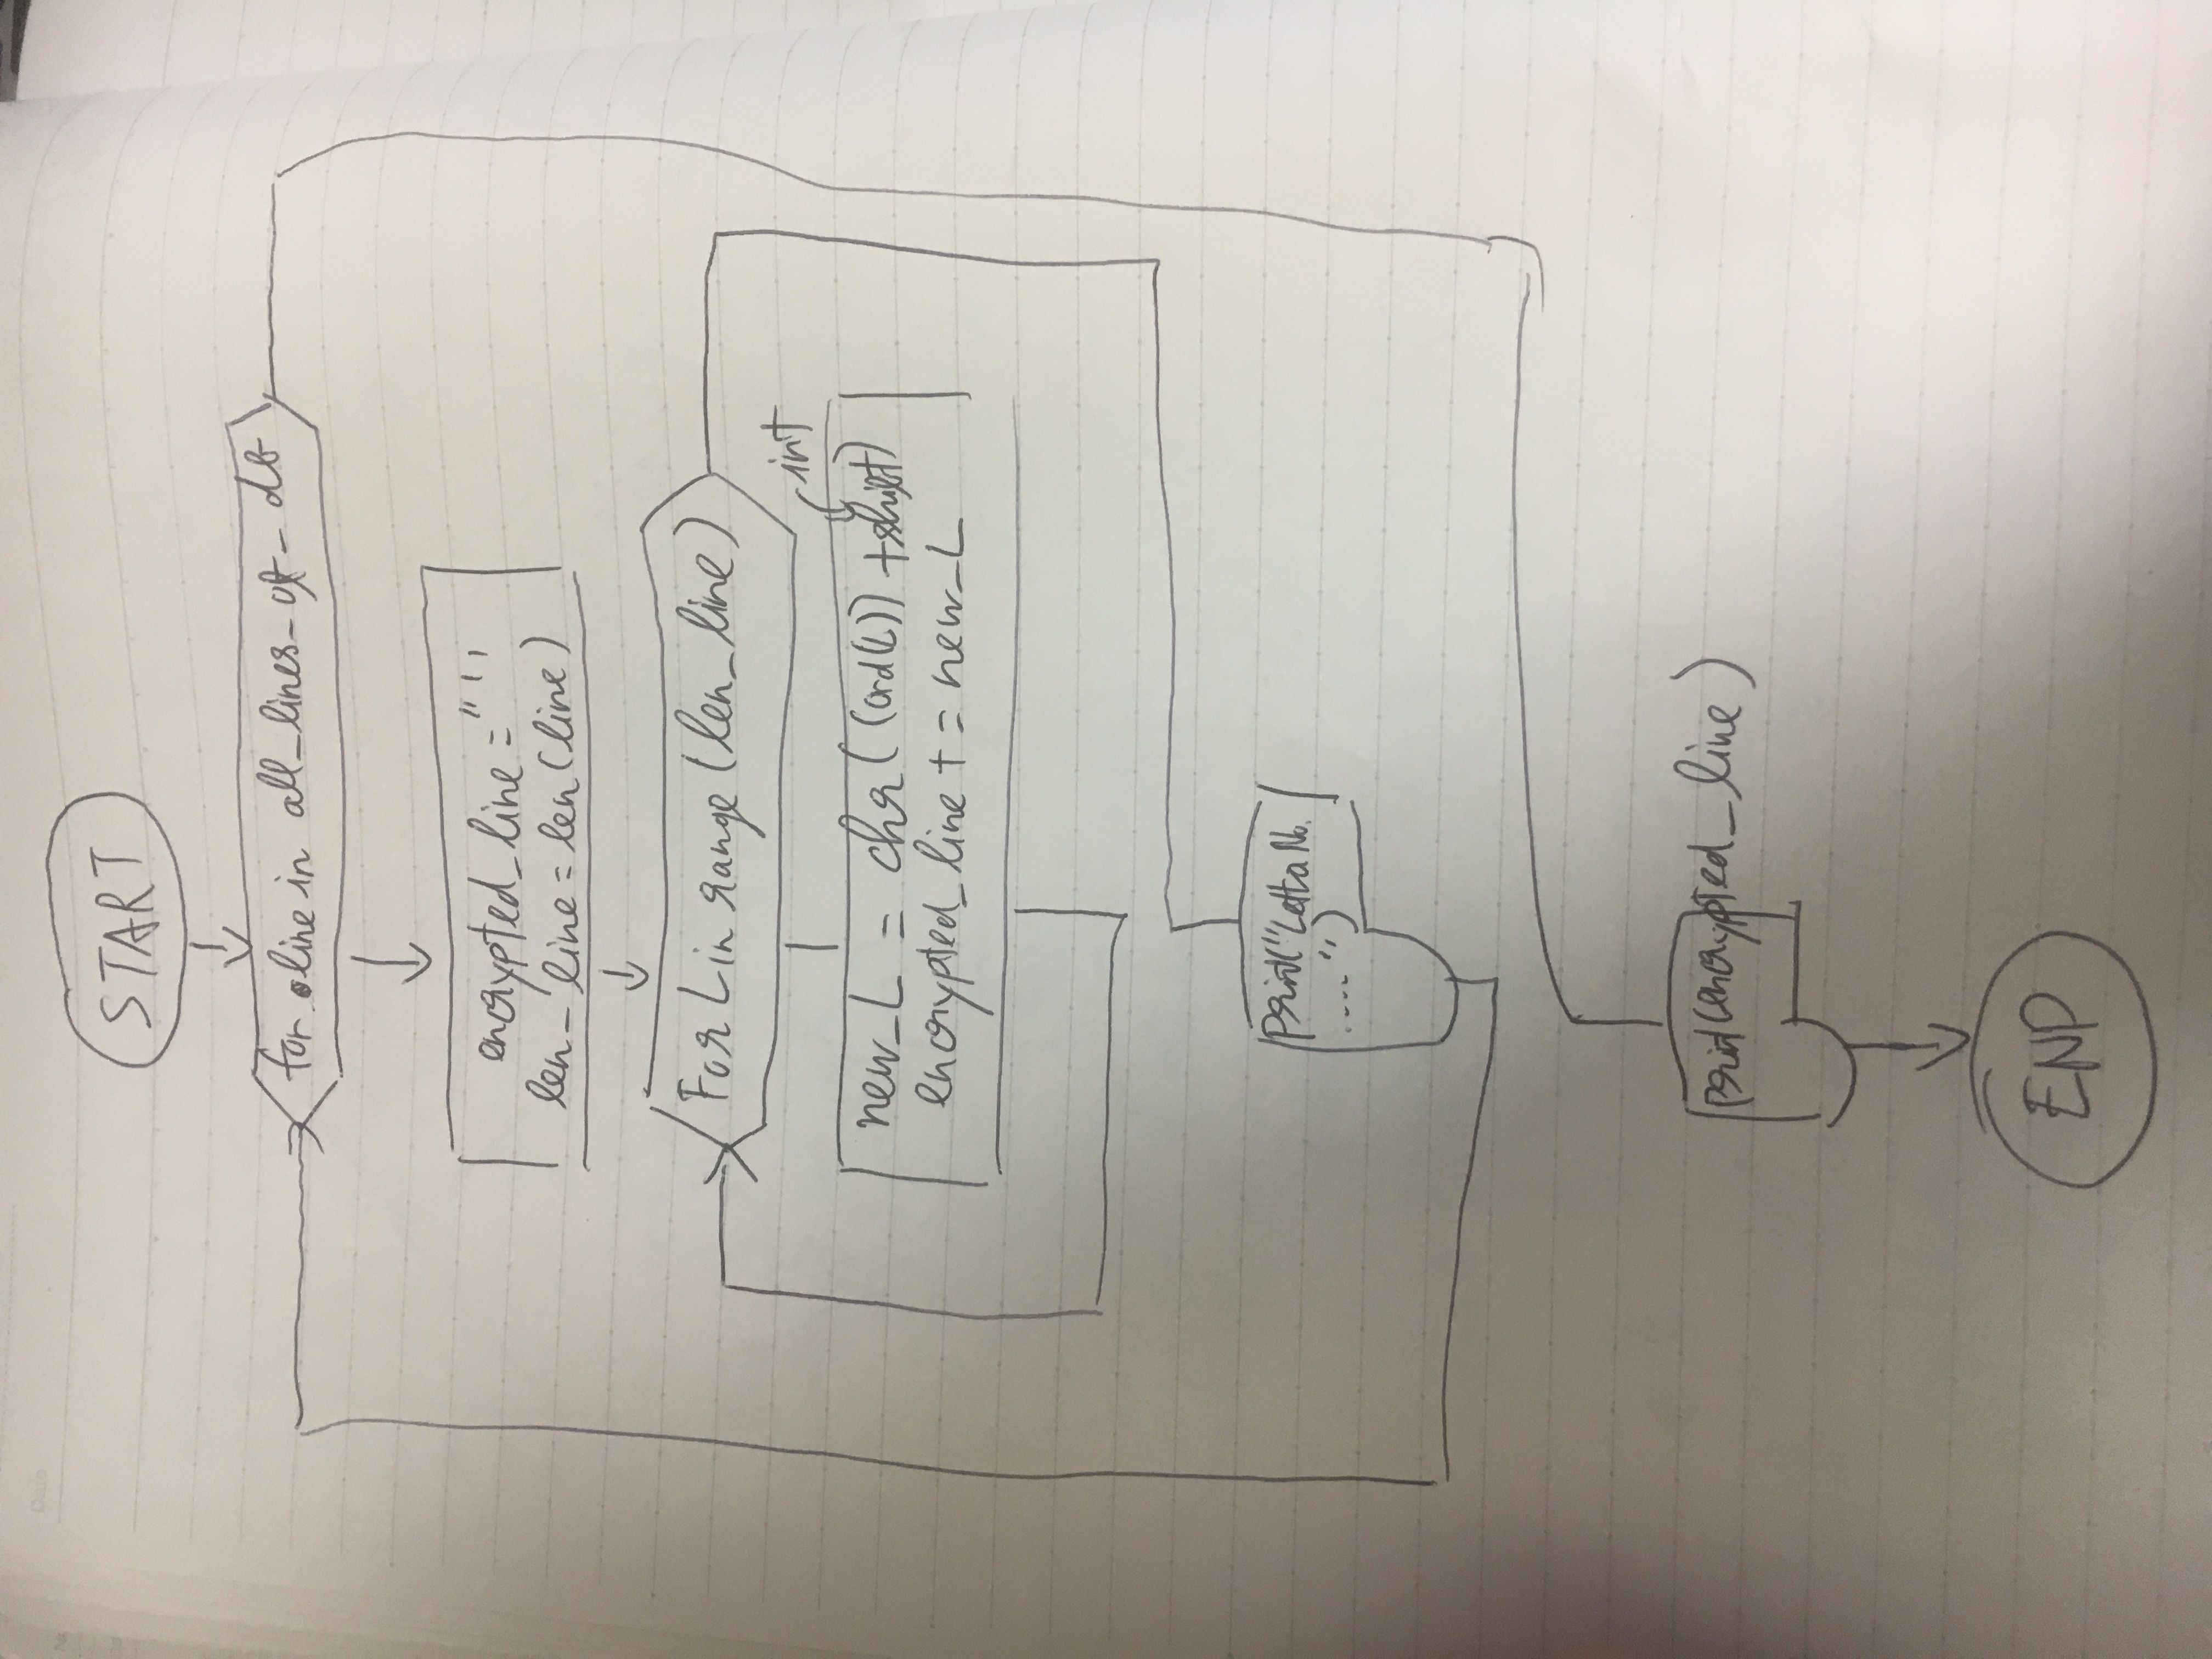 Date
START
for line in all_lines_of_db
encrypted_line = " ' '
len_line = len(line)
For L in range (len_line)
int
new_L = chr((ord(L)) + shift)
encrypted_line += new_L
print("Letta No.
....")
print(encrypted_line)
END